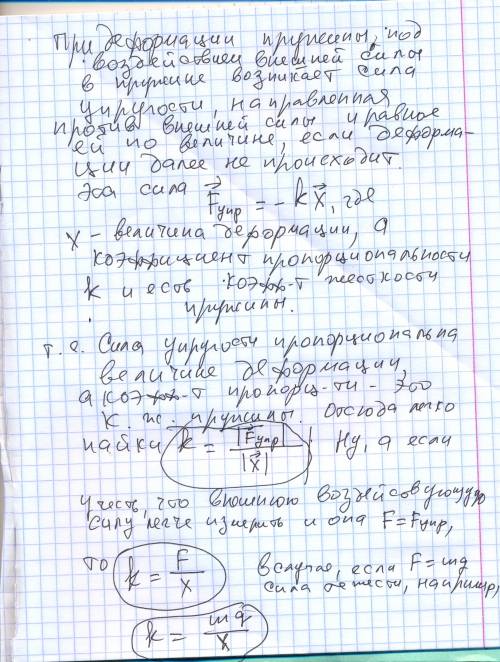 При деформации пружины, под
воздействием внешней силы
в пружине возникает сила
упругости, направленная
против внешней силы и равное
ей по величине, если деформа-
ции далее не происходит.
Эта сила F⃗упр = - k x⃗, где
x - величина деформации, а
коэффициент пропорциональности
k и есть коэфф-т жесткости
пружины.
т.е. Сила упругости пропорциональна
величине деформации,
а коэфф-т пропорц-ти - это
к. ж. пружины. Отсюда легко
найти k = |F⃗упр| / |x⃗| Ну, а если
учесть, что внешнюю воздействующую
силу легче измерить и она F = Fупр,
то k = F / x в случае, если F = mg
сила тяжести, например,
k = mg / x